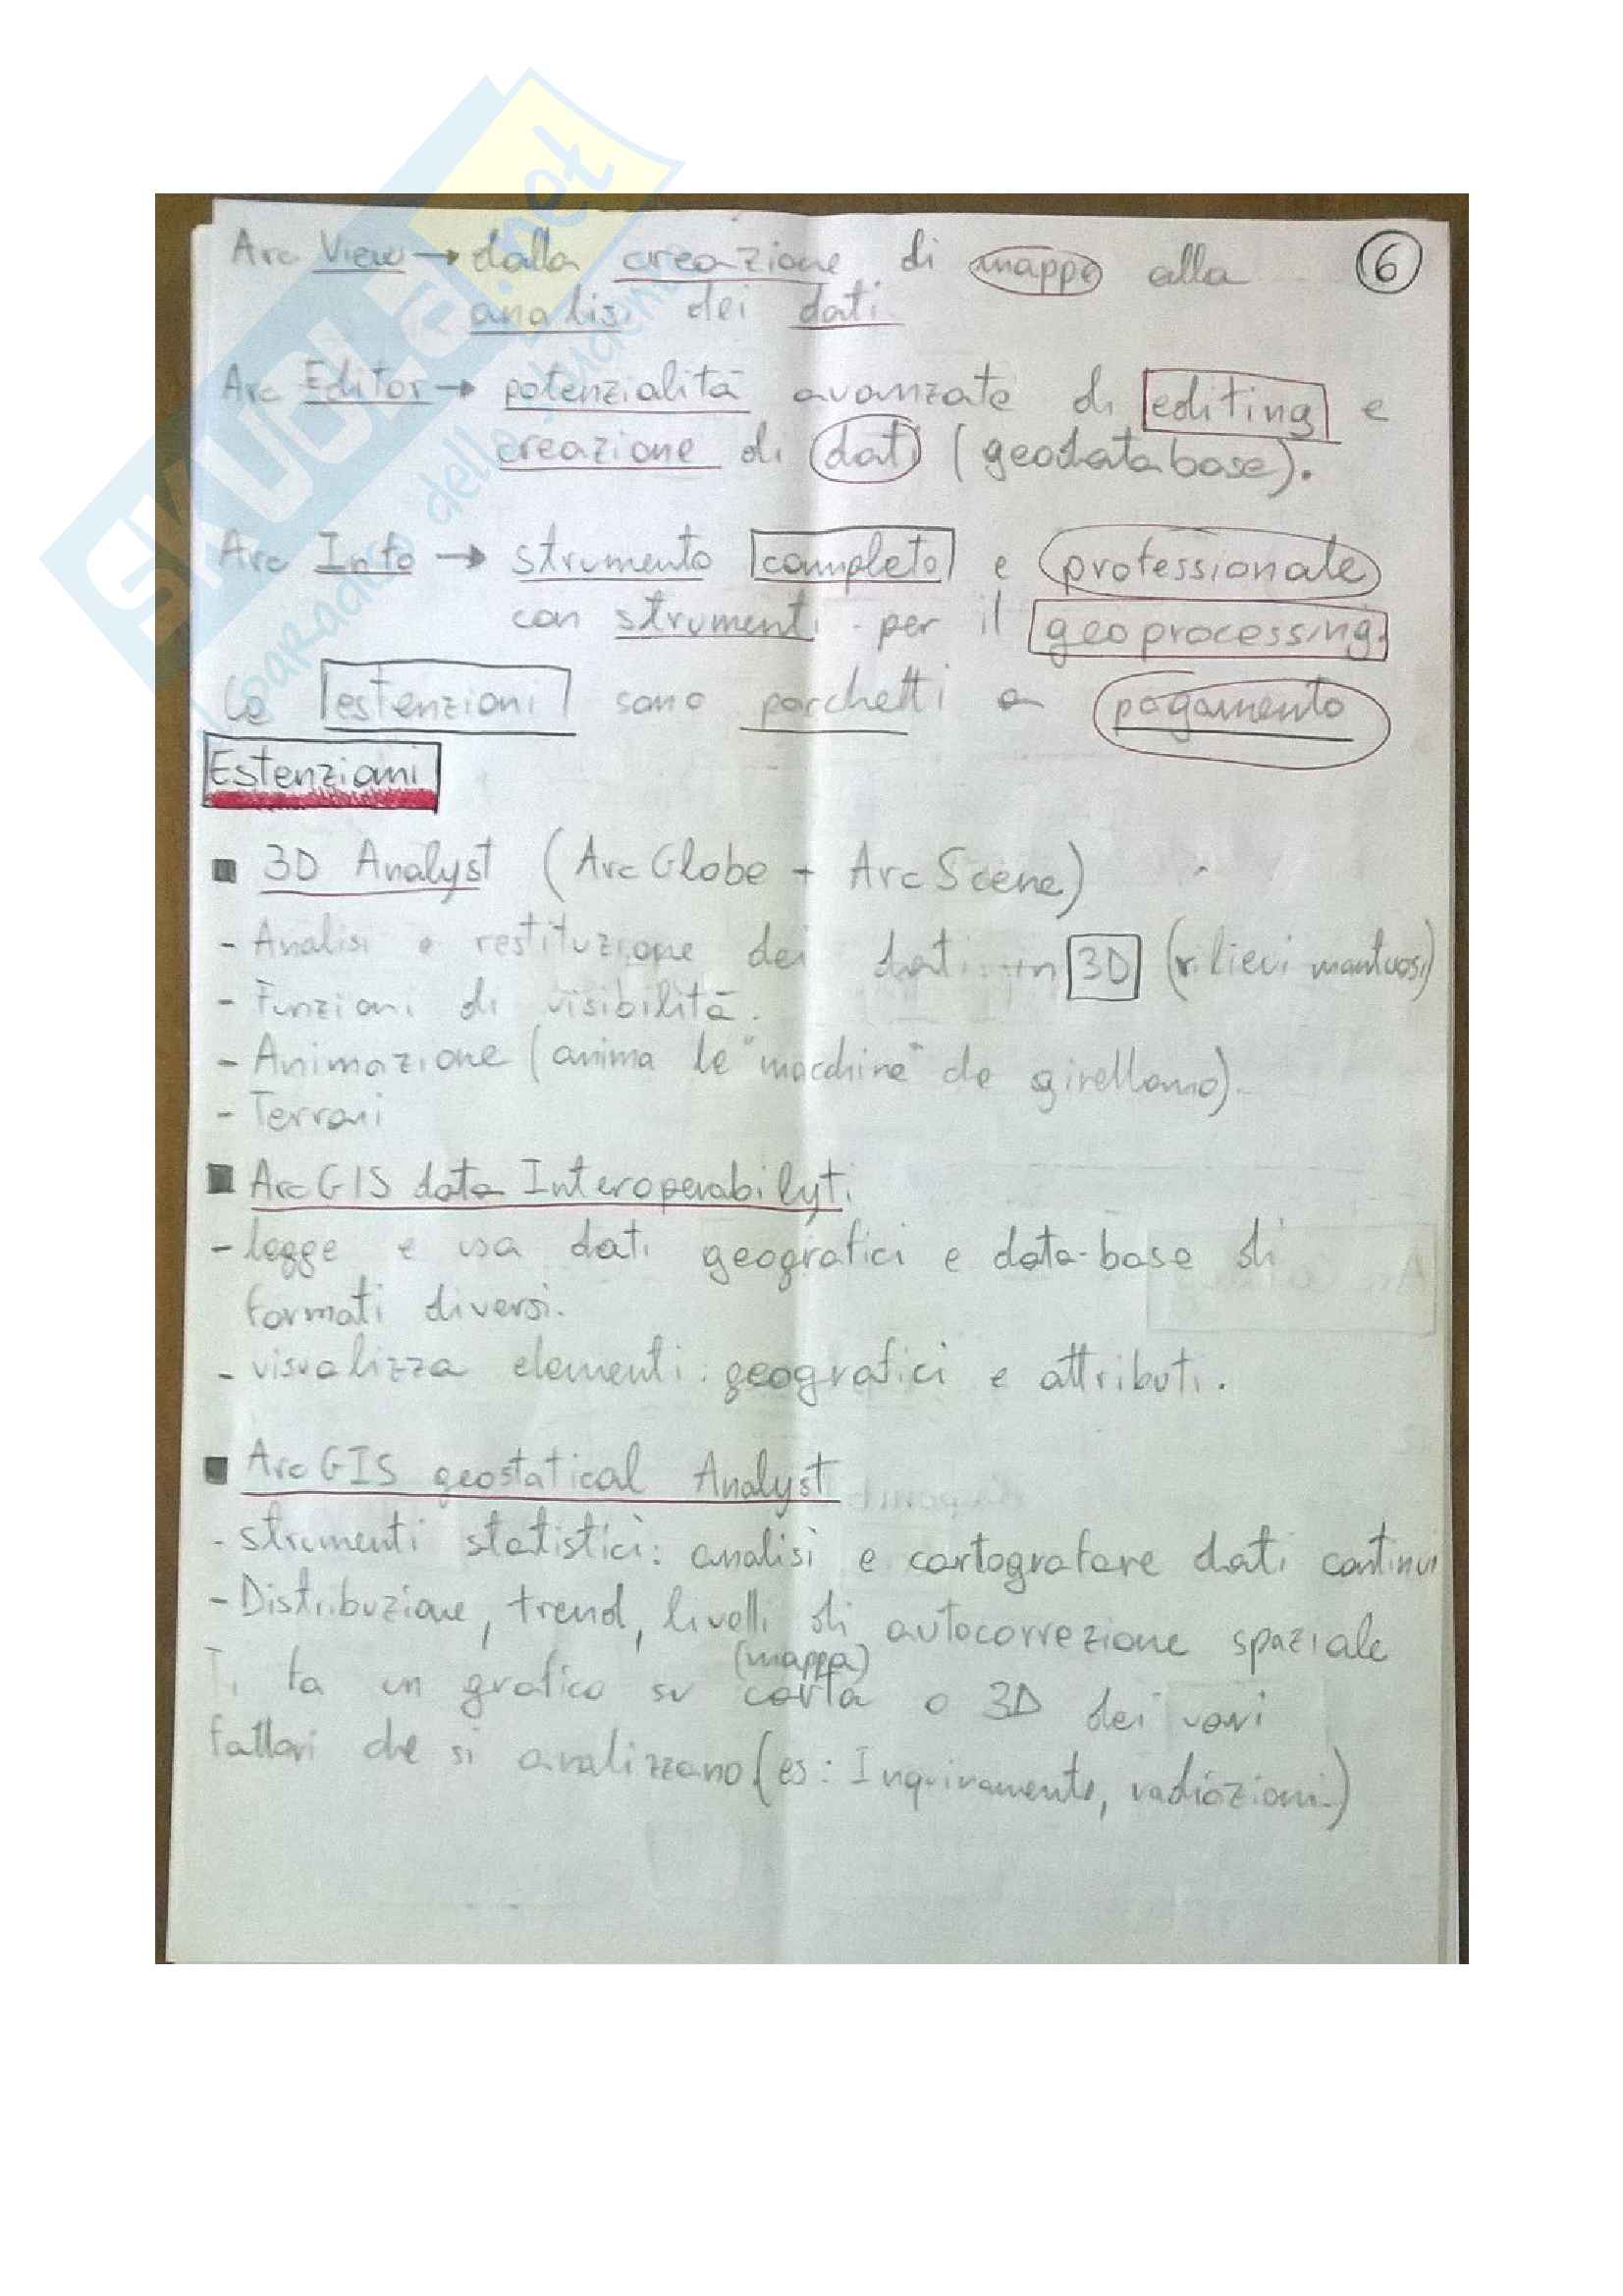 6
Arc View → dalla creazione di mappe alla
analisi dei dati.
Arc Editor → potenzialità avanzate di editing e
creazione di dati (geodatabase).
Arc Info → strumento completo e professionale
con strumenti per il geoprocessing.
Le estenzioni sono pacchetti a pagamento
Estenzioni
■ 3D Analyst (ArcGlobe + ArcScene)
- Analisi e restituzione dei dati in 3D (rilievi montuosi)
- Funzioni di visibilità.
- Animazione (anima le "macchine" che girellano).
- Terrani
■ ArcGIS data Interoperabilyti
- legge e usa dati geografici e data-base di
formati diversi.
- visualizza elementi geografici e attributi.
■ ArcGIS geostatical Analyst
- strumenti statistici: analisi e cartografare dati continui
- Distribuzione, trend, livelli di autocorrezione spaziale
(mappa)
Ti fa un grafico su carta o 3D dei vari
fattori che si analizzano (es: Inquinamento, radiazioni.)
SKUOLA.net
il paradiso dello studente